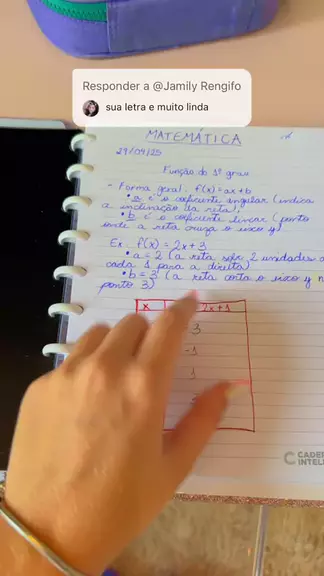 Responder a @Jamily Rengifo
sua letra e muito linda
MATEMÁTICA
29/04/25
Função do 1º grau
- Forma geral: f(x)=ax+b
• a é o coeficiente angular (indica
a inclinação da reta);
• b é o coeficiente linear (ponto
onde a reta cruza o eixo y)
Ex: f(x) = 2x+3
• a = 2 (a reta sobe 2 unidades a
cada 1 para a direita)
• b = 3 (a reta corta o eixo y n
ponto 3)
x 2x+1
3
-1
1
CADE
INTELI